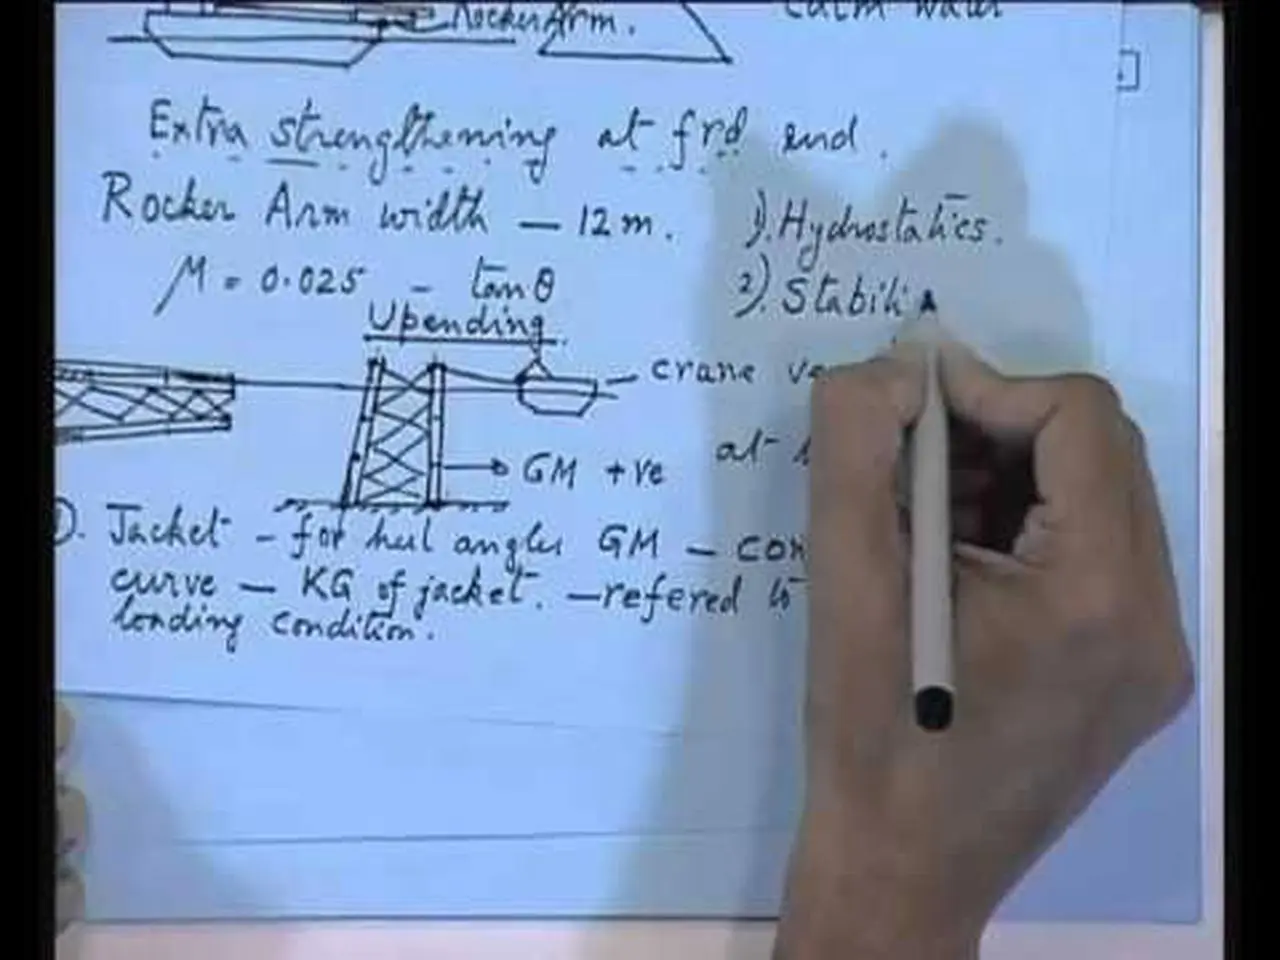 Rocker Arm.
Calm water
Extra strengthening at frd end.
Rocker Arm width — 12m.
1). Hydrostatics.
μ = 0.025 - tan θ
2). Stabili
Upending.
— crane
at
GM +ve
Jacket - for heel angles GM —
curve — KG of jacket. — refered to
loading condition.